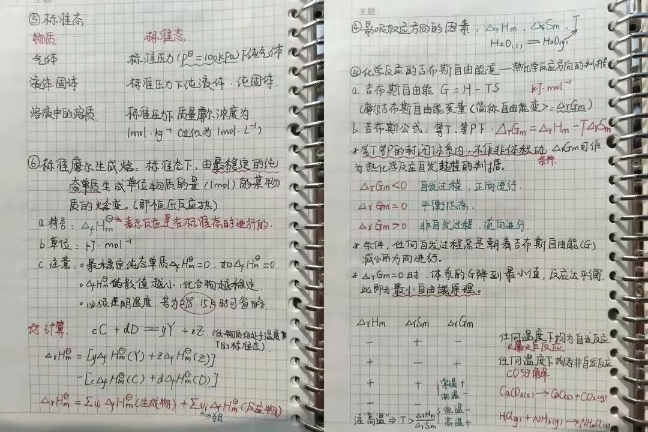 主题
⑤标准态
物质 标准态
气体 标准压力(p⊖=100kPa)下纯气体
液体 固体 标准压力下纯液体、纯固体
溶质中的溶质 标准压力下质量摩尔浓度为
1mol·kg⁻¹(近似为1mol·L⁻¹)
⑥标准摩尔生成焓:标准态下,由最稳定的纯
态单质生成单位物质的量(1mol)的某物
质的焓变。(即恒压反应热)
a.符号:ΔfHm⊖ 表示反应是在标准态时进行的.
b.单位:kJ·mol⁻¹
c.注意:最稳定纯态单质ΔfHm⊖=0,如ΔfHm⊖=0
ΔfHm⊖代数值越小,化合物越稳定
必须注明温度,若为298.15K时可省略
☆计算: cC+dD=yY+zZ (任物质均处于温度
T的标准态)
ΔrHm⊖=[yΔfHm⊖(Y)+zΔfHm⊖(Z)]
-[cΔfHm⊖(C)+dΔfHm⊖(D)]
ΔrHm⊖=Σνi ΔfHm⊖(生成物)+Σνi ΔfHm⊖(反应物)
主题
④影响反应方向的因素:ΔrHm、ΔrSm、T
H₂O(l)=H₂O(g)
⑤化学反应的吉布斯自由能变—热化学反应方向的判据
a.吉布斯自由能 G=H-TS kJ·mol⁻¹
(摩尔吉布斯自由能变量(简称自由能变):ΔrGm)
b.吉布斯公式:等T、等P下 ΔrGm=ΔrHm-TΔrSm
*等T等P的封闭体系内,不作非体积功,ΔrGm可作
条件
为热化学反应自发过程的判据。
ΔrGm<0 自发过程,正向进行.
ΔrGm=0 平衡状态.
ΔrGm>0 非自发过程,逆向进行.
*条件,任何自发过程总是朝着吉布斯自由能(G)
减小的方向进行。
*ΔrGm=0时,体系的G降到最小值,反应达平衡
此即为最小自由能原理。
ΔrHm ΔrSm ΔrGm
- + - 任何温度下均为自发反应
+ - + 任何温度下均为非自发反应
CO分解
+ + 常温+ CaCO₃(s)→CaO(s)+CO₂(g)
高温-
- - 低温- HCl(g)+NH₃(g)→NH₄Cl(s)
高温+
注"高温"⇒T>ΔrHm/ΔrSm